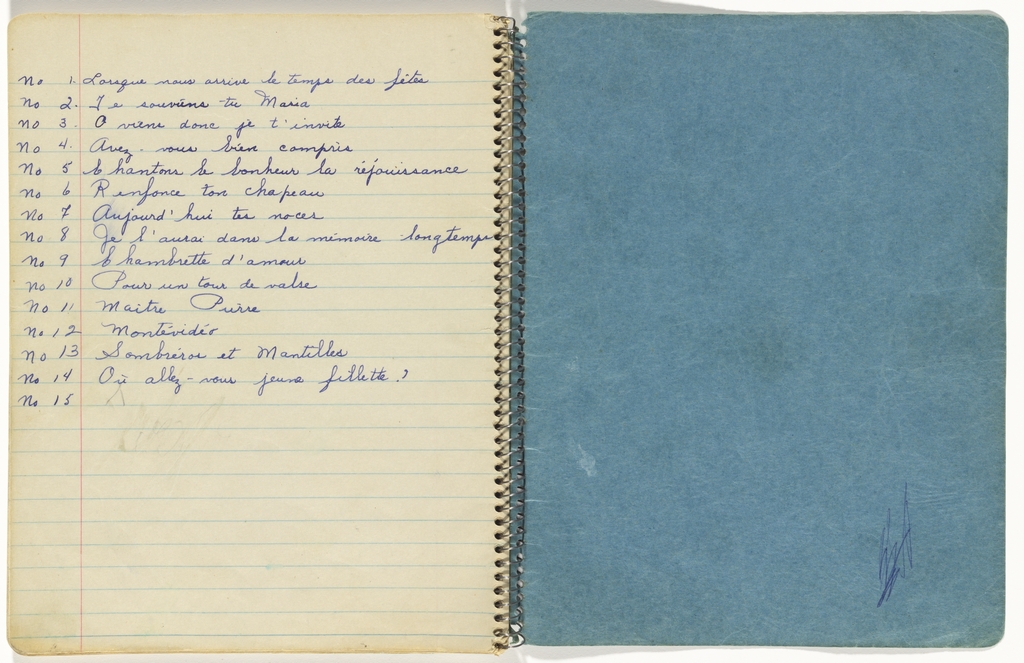 No 1. Lorsque nous arrive le temps des fêtes
No 2. Te souviens-tu Maria
No 3. O viens donc je t'invite
No 4. Avez-vous bien compris
No 5 Chantons le bonheur la réjouissance
No 6 Renfonce ton chapeau
No 7 Aujourd'hui tes noces
No 8 Je l'aurai dans la mémoire longtemps
No 9 Chambrette d'amour
No 10 Pour un tour de valse
No 11 Maitre Pierre
No 12 Montévidéo
No 13 Sombréros et Mantilles
No 14 Où allez-vous jeune fillette?
No 15